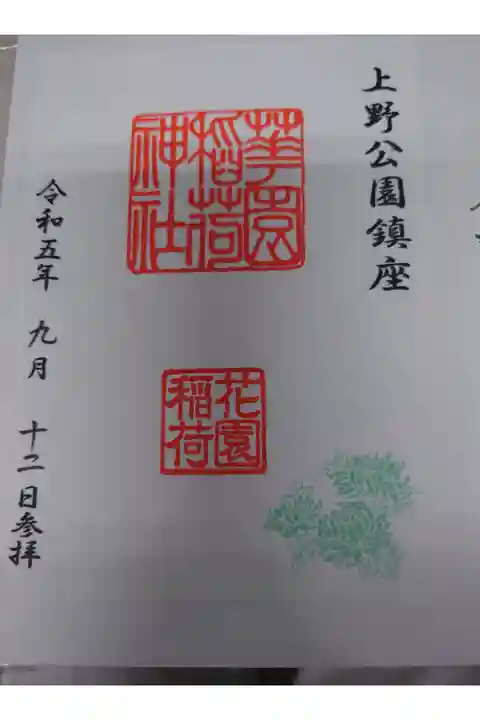 上野公園鎮座
華園
稲荷
神社
花園
稲荷
令和五年 九月 十二日参拝